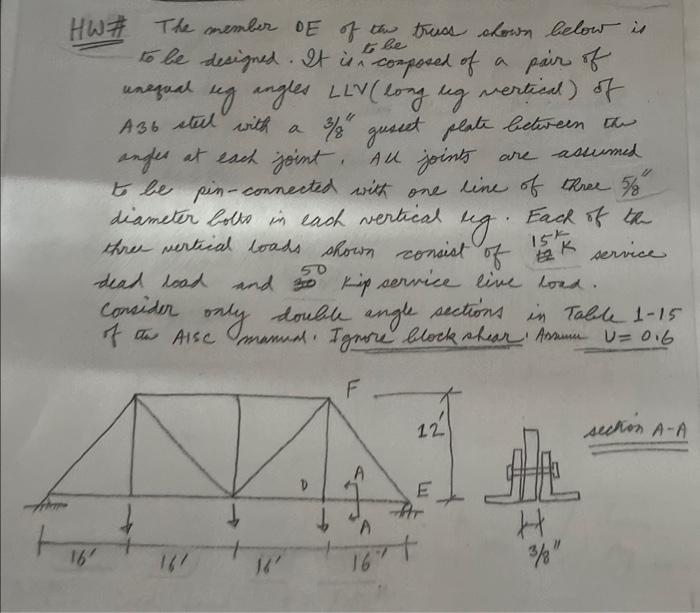 HW# The member DE of the truss shown below is
to be designed. It is to be composed of a pair of
unequal leg angles LLV (long leg vertical) of
A36 steel with a 3/8" gusset plate between the
angles at each joint. All joints are assumed
to be pin-connected with one line of three 5/8"
diameter bolts in each vertical leg. Each of the
three vertical loads shown consist of 15K K service
dead load and 50 kip service live load.
Consider only double angle sections in Table 1-15
of the AISC manual. Ignore block shear. Assume U = 0.6
F
12'
section A-A
D
A
E
A
16'
16'
16'
16'
3/8"